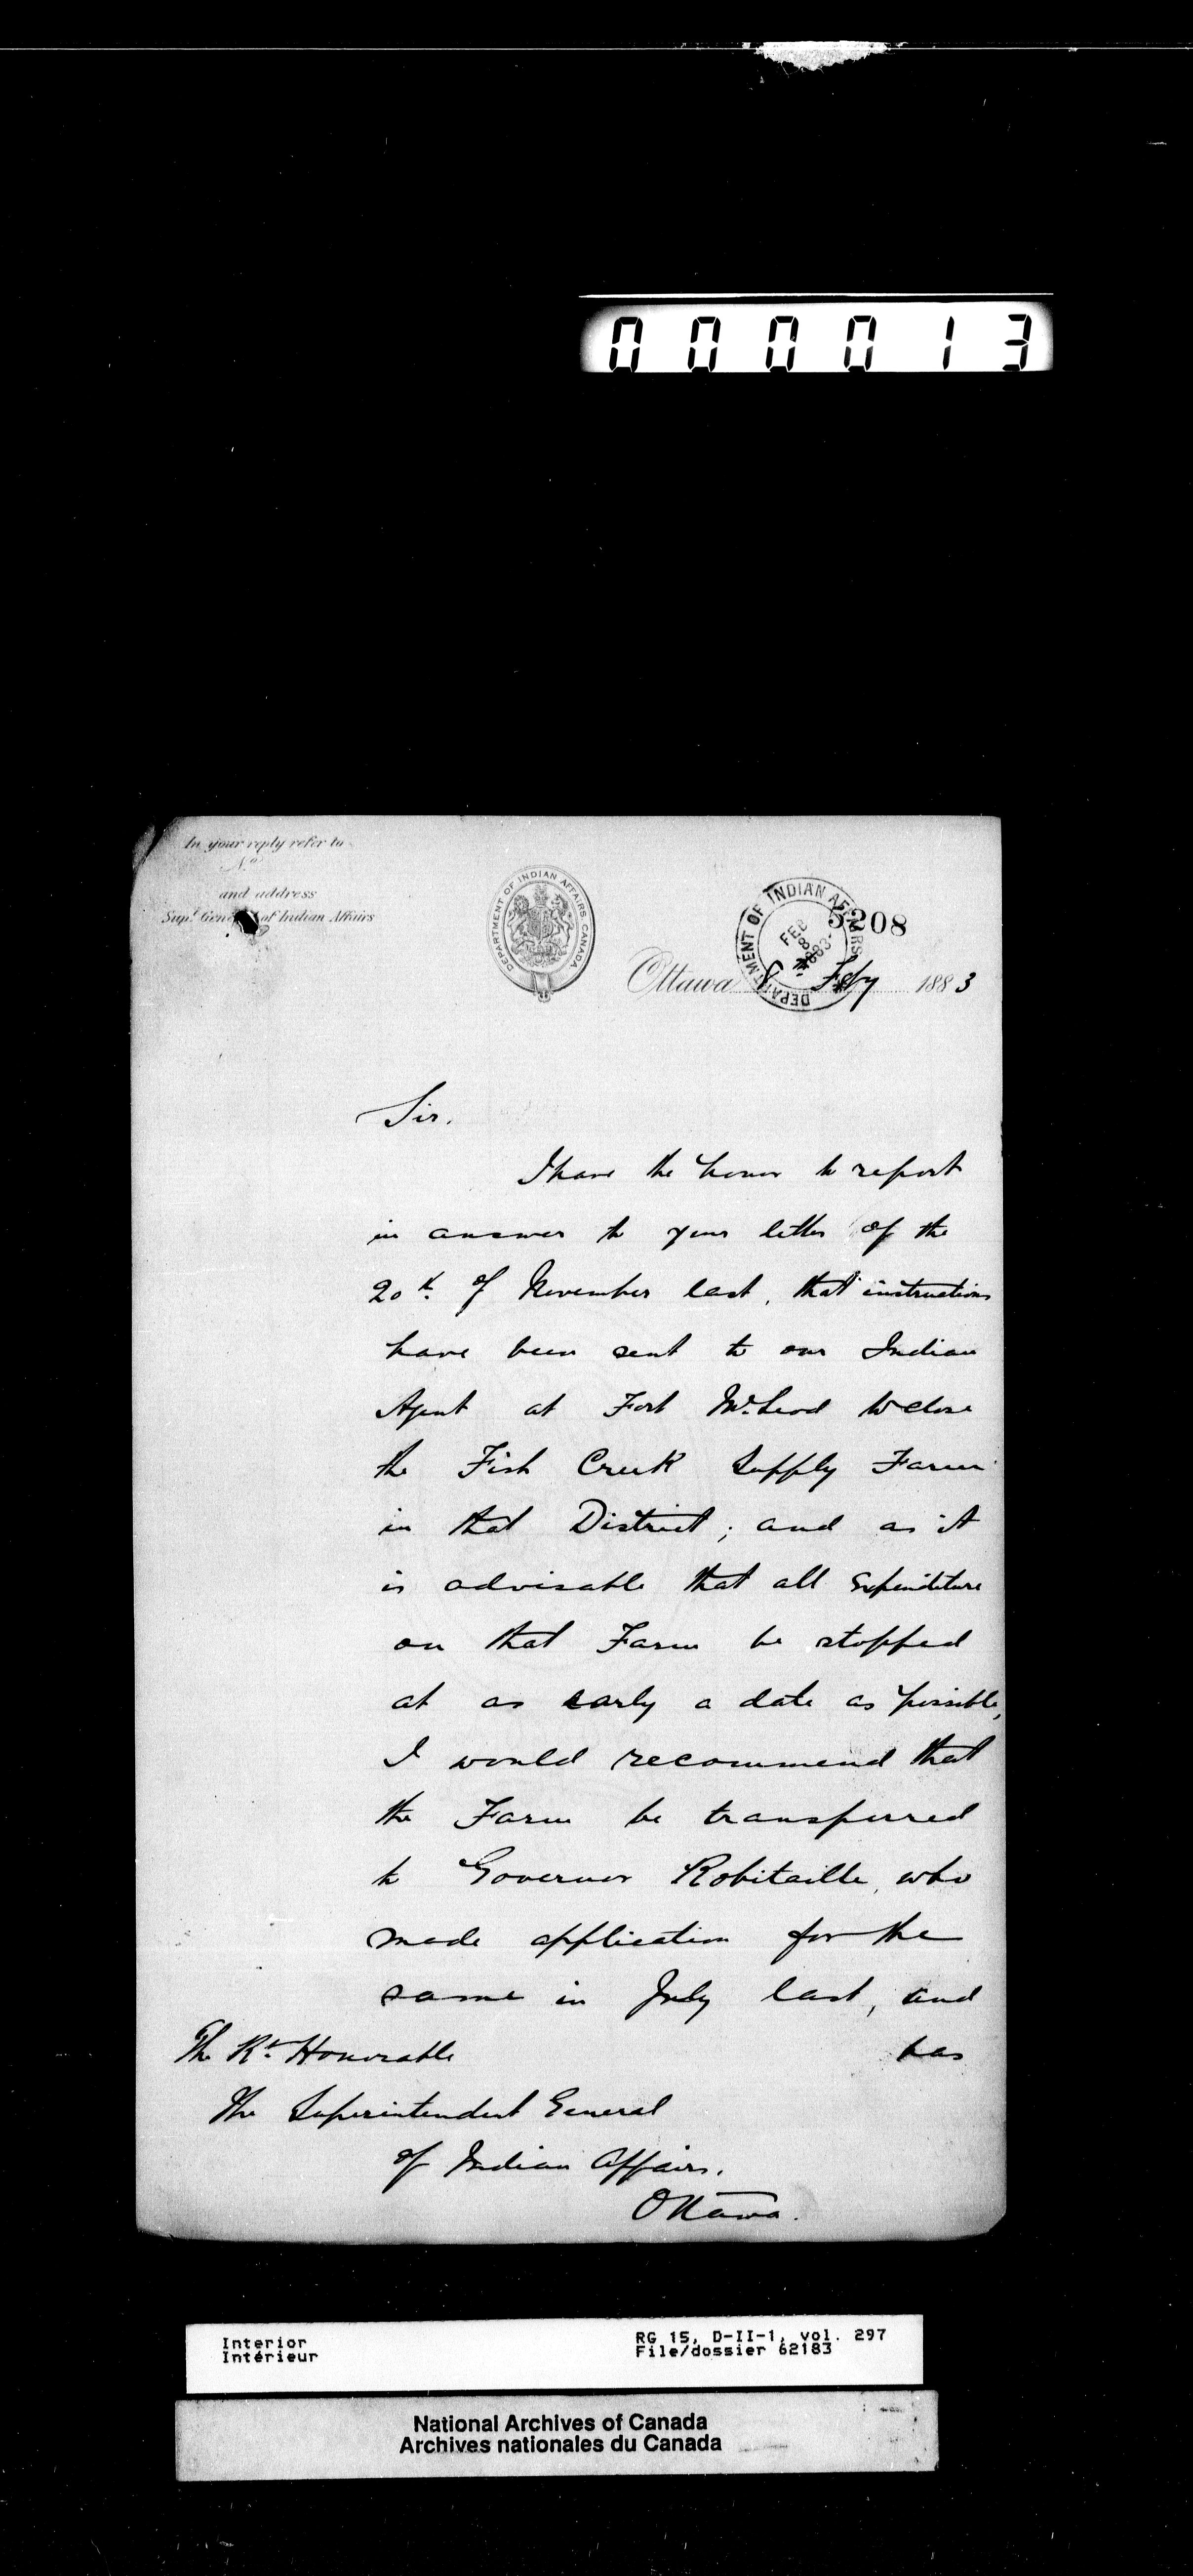 000013
In your reply refer to
No
and address
Supt. General of Indian Affairs
DEPARTMENT OF INDIAN AFFAIRS. CANADA
DEPARTMENT OF INDIAN AFFAIRS
FEB
8
1883
5208
Ottawa 8 Feby 1883
Sir.
I have the honor to report
in answer to your letter of the
20th. of November last, that instructions
have been sent to our Indian
Agent at Fort McLeod to close
the Fish Creek Supply Farm
in that District; and as it
is advisable that all Expenditure
on that Farm be stopped
at as early a date as possible,
I would recommend that
the Farm be transferred
to Governor Robitaille, who
made application for the
same in July last, and
has
The Rt. Honorable
The Superintendent General
of Indian Affairs.
Ottawa.
Interior
Intérieur
RG 15, D-II-1, vol. 297
File/dossier 62183
National Archives of Canada
Archives nationales du Canada